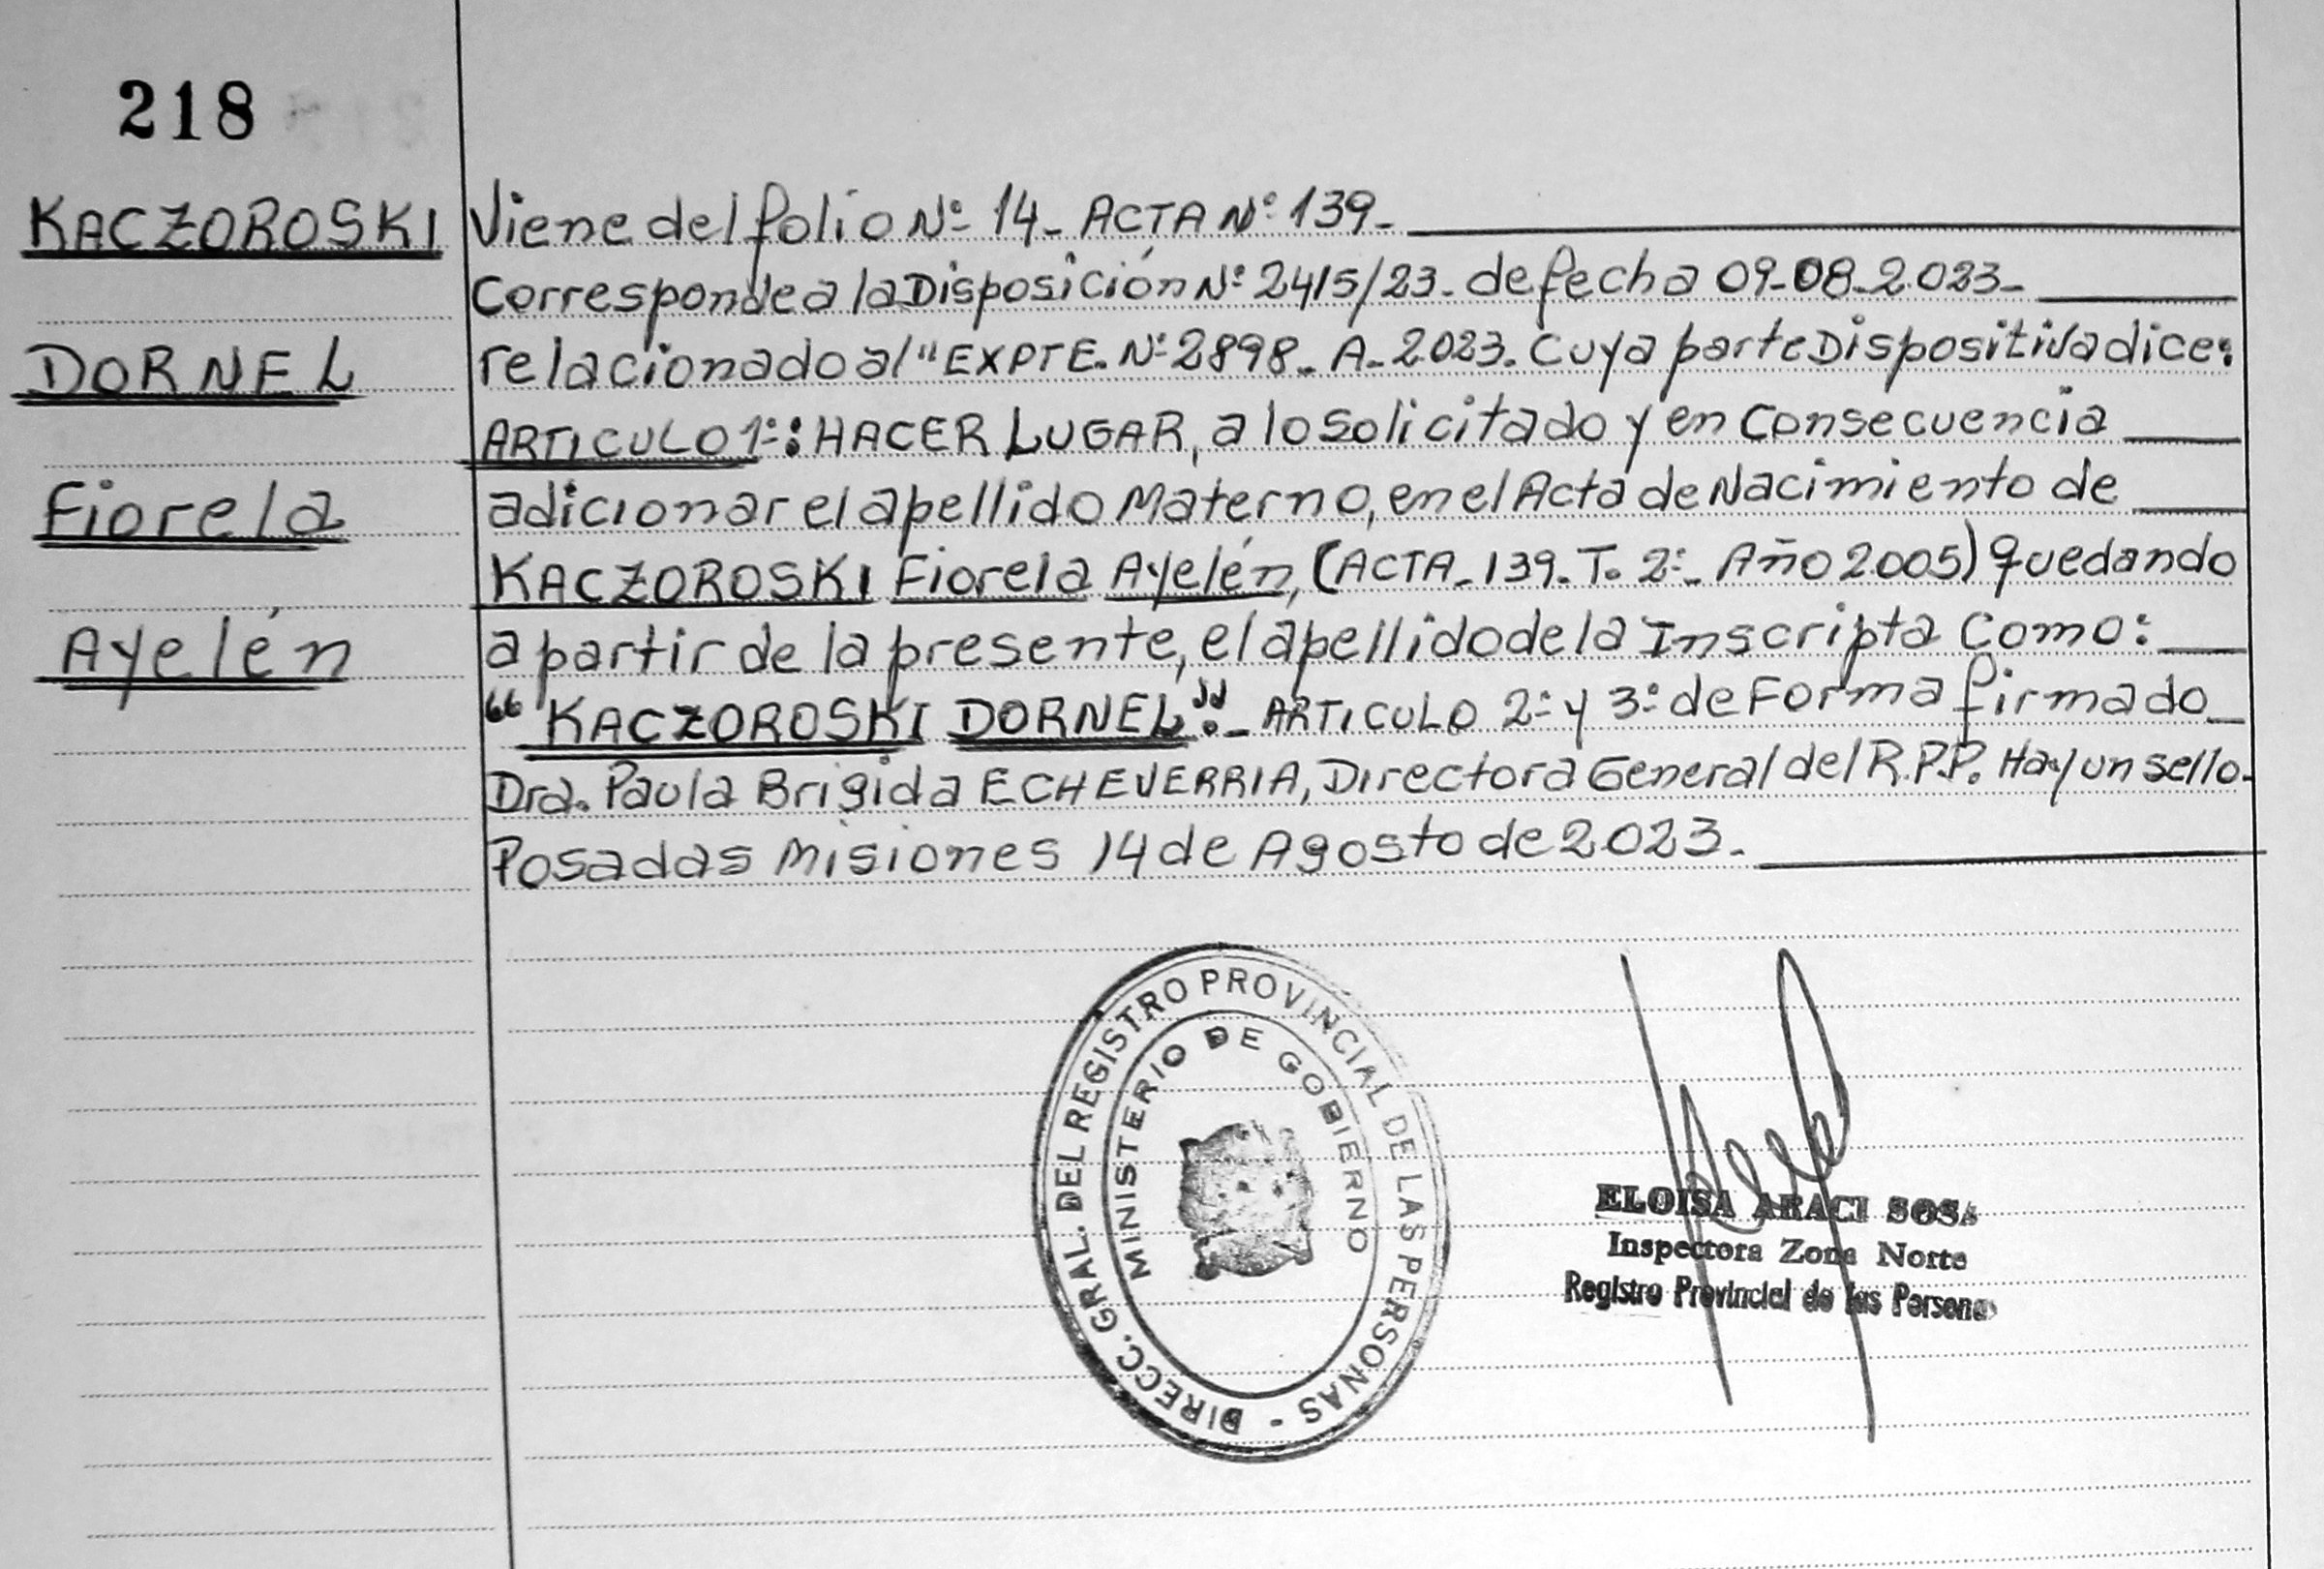 218
KACZOROSKI
DORNEL
Fiorela
Ayelén
Viene del folio Nº 14_ ACTA Nº 139_
Corresponde a la Disposición Nº 2415/23_ de fecha 09-08-2023_
relacionado al "EXPTE. Nº 2898_ A_ 2023. Cuya parte Dispositiva dice:
ARTICULO 1º: HACER LUGAR, a lo solicitado y en Consecuencia
adicionar el apellido Materno, en el Acta de Nacimiento de
KACZOROSKI Fiorela Ayelén, (ACTA_ 139_ T. 2º_ Año 2005) quedando
a partir de la presente, el apellido de la Inscripta Como:
"KACZOROSKI DORNEL"._ ARTICULO 2º y 3º de Forma firmado_
Dra. Paula Brigida ECHEVERRIA, Directora General del R.P.P. Hay un sello_
Posadas Misiones 14 de Agosto de 2023_
DIRECC. GRAL. DEL REGISTRO PROVINCIAL DE LAS PERSONAS -
MINISTERIO DE GOBIERNO
ELOISA ARACI SOSA
Inspectora Zona Norte
Registro Provincial de las Personas